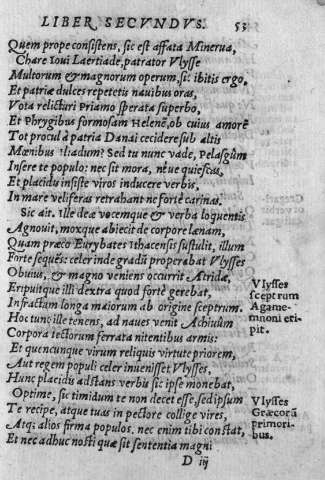 LIBER SECVNDVS. 53
Quem prope consistens, sic est affata Minerua,
Chare Ioui Laertiade, patrator Vlysse
Multorum & magnorum operum, sic ibitis ergo,
Et patriæ dulces repetetis nauibus oras,
Vota relicturi Priamo sperata superbo,
Et Phrygibus formosam Helenē, ob cuius amorē
Tot procul à patria Danai cecidere sub altis
Mœnibus Iliadum? Sed tu nunc vade, Pelasgûm
Insere te populo: nec sit mora, néue quiescas,
Et placidu insiste viros inducere verbis,
In mare veliferas retrahant ne forte carinas.
Sic ait. Ille deæ vocemque & verba loquentis
Agnouit, moxque abiecit de corpore lænam,
Quam præco Eurybates Ithacensis sustulit, illum
Forte sequēs: celer inde gradū properabat Vlysses
Obuius, & magno veniens occurrit Atridæ,
Eripuitque illi dextra quod forte gerebat,
Infractam longa maiorum ab origine sceptrum.
Hoc tunc ille tenens, ad naues venit Achiuûm
Corpora tectorum ferrata nitentibus armis:
Et quencunque virum reliquis virtute priorem,
Aut regem populi celer inuenisset Vlysses,
Hunc placidis adstans verbis sic ipse monebat,
Optime, sic timidum te non decet esse, sed ipsum
Te recipe, atque tuas in pectore collige vires,
Atq; alios firma populos. nec enim tibi constat,
Et nec adhuc nosti quæ sit sententia magni
D iij
Vlysses
sceptrum
Agame-
mnoni eri-
pit.
Vlysses
Græcorū
primori-
bus.